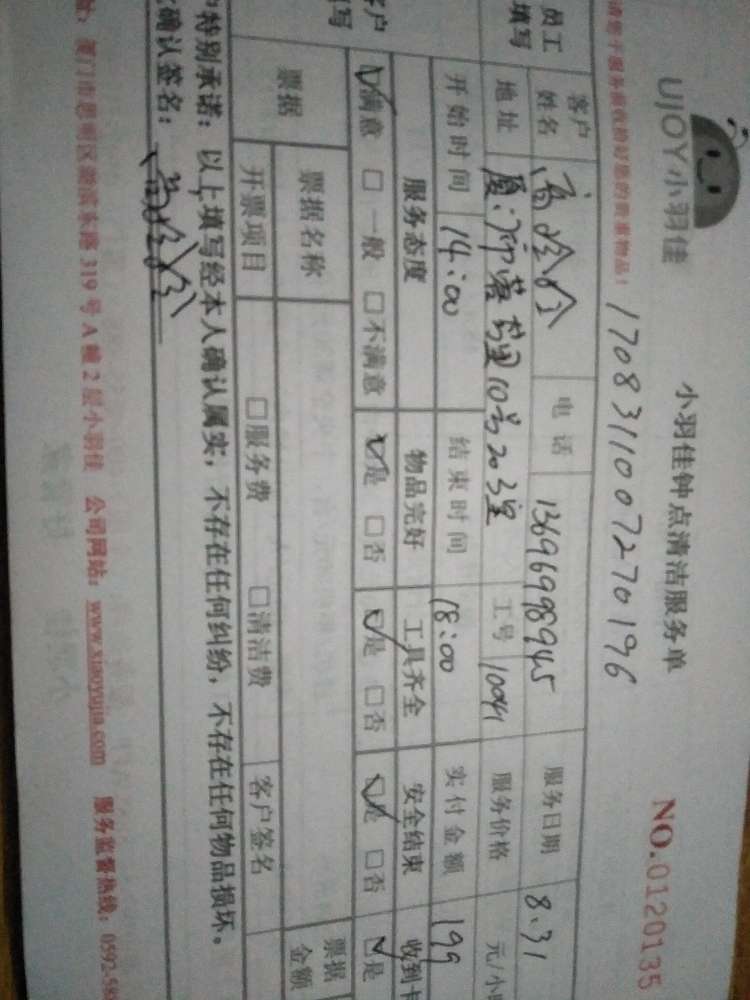 UJOY小羽佳
小羽佳钟点清洁服务单
NO.0120135
1708311007270196
员工
填写
客户
姓名
电话
13696998945
服务日期
8.31
地址
10号203室
工号
10041
服务价格
元/小时
开始时间
14:00
结束时间
18:00
实付金额
199
服务态度
物品完好
工具齐全
安全结束
收到卡
☑满意 □一般 □不满意
☑是 □否
☑是 □否
☑是 □否
☑是
票据
票据名称
票据
金额
开票项目
□服务费
□清洁费
客户签名
特别承诺：以上填写经本人确认属实，不存在任何纠纷，不存在任何物品损坏。
确认签名：
319号A幢2层小羽佳 公司网站：www.xiaoyujia.com 服务监督热线：0592-58